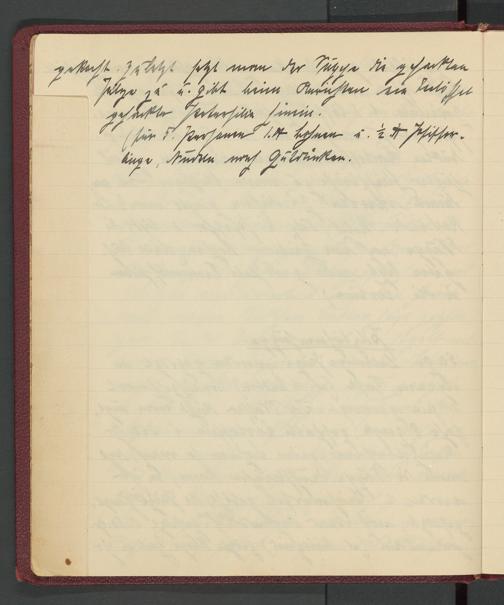 gekocht. Zuletzt setzt man der Suppe die gehackten
Pilze zu u. gibt beim Anrichten ein Teelöffel
gehackte Petersilie hinein.
(für 5 Personen 1 ℔ Bohnen u. ½ ℔ Pfiffer-
linge, Nudeln nach Gutdünken.